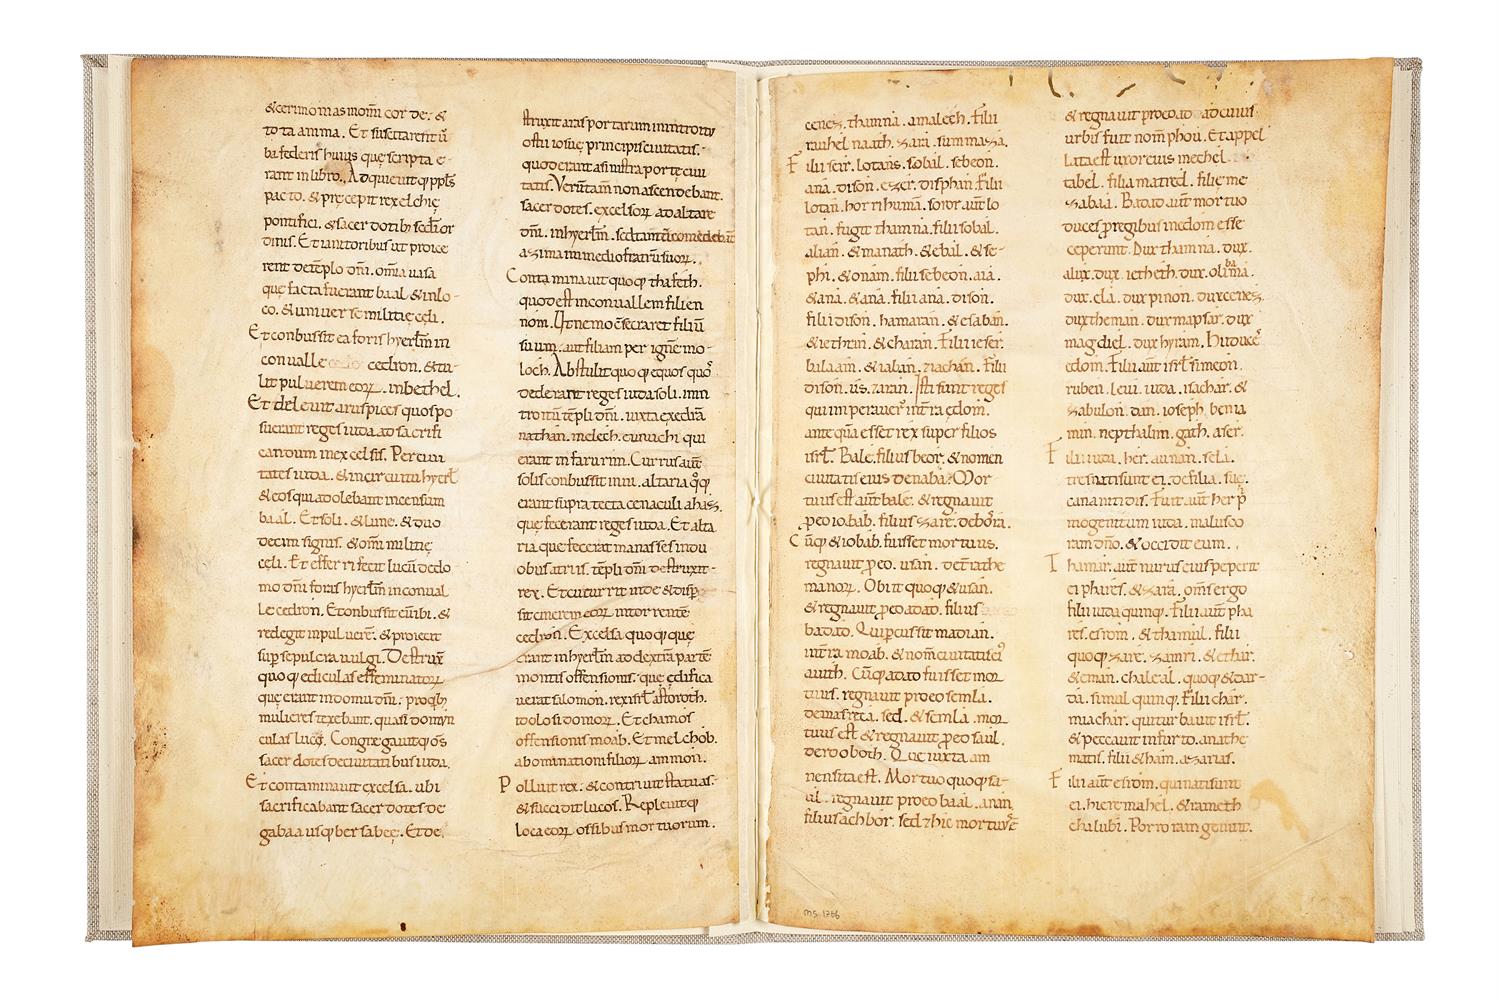 & ceremonias in om̄i corde. &
tota anima. Et suscitarent ū
ba federis huius quę scripta e-
rant in libro. Adquieuitq; ppl̄s
pacto. & pręcepit rex elchię
pontifici. & sacerdotib; sc̄di or
dinis. Et ianitoribus ut proice
rent de templo dn̄i. om̄ia uasa
quę facta fuerant baal & in lo-
co. & uniuersę militię cęli.
Et conbussit ea foris hyerl̄m in
conualle cedron. & tu-
lit puluerem eorꝝ. in bethel.
Et deleuit aruspices quos po
suerant reges iuda ad sacrifi
candum in excelsis. Per ciui
tates iuda. & in circuitu hyerl̄
& eos qui adolebant incensum
baal. Et soli. & lune. & duo
decim signis. & om̄i militię
cęli. Et efferri fecit lucū de do
mo dn̄i foris hyerl̄m in conual
le cedron. Et conbussit eū ibi. &
redegit in puluerē. & proiecit
sup sepulcra uulgi. Destrux̄
quoq; ediculas effeminatorꝝ
quę erant in domu dn̄i. pro q̄b;
mulieres texebant. quasi domun
culas luci. Congregauitq; os̄
sacerdotes de ciuitatibus iuda.
Et contaminauit excelsa. ubi
sacrificabant sacerdotes de
gabaa usq; bersabeę. Et de
struxit aras portarum in introitu
ostii iosuę principis ciuitatis.
quod erat a sinistra portę ciui
tatis. Verūtam̄ non ascendebant.
sacerdotes. excelsorꝝ ad altare
dn̄i. in hyerl̄m. sed tantū comedebant
azima in medio fratrū suorꝝ.
Contaminauit quoq; thafeth.
quod est in conuallem filii en
nom. Ut nemo c̄secraret filiū
suum. aut filiam per ignē mo-
loch. Abstulit quoq; equos quos
dederant reges iuda soli. in in
troitū tēpli dn̄i. iuxta exedrā
nathan. melech. eunuchi qui
erant in farurim. Currus aūt
solis conbussit inni. altaria q̄q;
erant supra tecta cenaculi ahaz.
quę fecerant reges iuda. Et alta
ria que fecerat manasses in du
obus atriis. tēpli dn̄i destruxit-
rex. Et cucurrit inde & disp̄
sit cinerem eorꝝ in torrentē
cedron. Excelsa quoq; quę
erant in hyerl̄m ad dextrā partē
montis offensionis. quę edifica
uerat salomon. rex isrl̄ astoroth.
idolo sidoniorꝝ. Et chamos
offensionis moab. Et melchob.
abominationi filiorꝝ ammon.
Polluit rex. & contriuit statuas.
& succidit lucos. Repleuitq;
loca eorꝝ ossibus mortuorum.
cenez. thamna. amalech. Filii
rauhel naath. zara. summa za.
Filii seir. lotans. sobal. sebeon.
ana. dison. ezer. disphan. Filii
lotan. horri humā. soror aūt lo
tan. fugit thamna. filii sobal.
alian. & manath. & ebal. & se-
phi. & onam. filii sebeon. aia.
& ana. & ana. filii ana. dison.
filii dison. hamaran. & esaban.
& iethran. & charan. Filii ieser.
balaam. & iaban. ziachan. Filii
dison. us. zaran. Isti sunt reges
qui imperauer̄ int̄ra edom.
ante quā esset rex super filios
isrl̄. Bale. filius beor. & nomen
ciuitatis eius denaba. Mor-
tuus est aūt bale. & regnauit
ꝓ eo iobab. filius zare. de bosra.
Cūq; & iobab. fuisset mortuus.
regnauit ꝓ eo. usan. de t̄ra the
manorꝝ. Obiit quoq; & usan.
& regnauit ꝓ eo adad. filius
badad. Qui p̄cussit madian.
in t̄ra moab. & nom̄ ciuitatis ei;
auith. Cūq; adad fuisset mor
tuus. regnauit pro eo semla.
de masreca. sed. & semla. mor
tuus est & regnauit ꝓ eo saul.
de rooboth. Quę iuxta am
nem sita est. Mortuo quoq; sa-
ul. regnauit pro eo baal. anan
filius achbor. sed & hic mortuus ē
& regnauit pro eo ad adcuius
urbis fuit nom̄ phou. Et appel
lata est uxor eius mechel
tabel. filia matred. filię me
zabaa. Badad aūt mortuo
duces p̄ regibus in edom esse
ceperunt. Dux thamna. dux.
aliꝫ. dux. ietheth. dux. olibama.
dux. ela. dux pinon. dux cenez.
dux theman. dux mapsar. dux
magdiel. dux hyram. Hi duces
edom. Filii aūt isrl̄ simeon.
ruben. leui. iuda. isachar. &
zabulon. dan. ioseph. benia
min. nepthalim. gath. aser.
Filii iuda. her. aunan. sela.
tres nati sunt ei. de filia. sue.
cananitidis. Fuit aūt her p̄
mogenitum iuda. malus co
ram dn̄o. & occidit eum.
Thamar. aūt nurus eius peperit
ei phares. & zara. om̄s ergo
filii iuda quinq;. Filii aūt pha
res. esrom. & thamul. filii
quoq; zare. zamri. & ethar.
& eman. chalcal. quoq; & dar-
da. simul quinq;. Filii char.
mi achar. qui turbauit isrl̄.
& peccauit in furto. anathe
matis. filii & ham. azarias.
Filii aūt esrom. qui nati sunt
ei. hieremahel. & rameth
chalubi. Porro ram genuit.
ms 1756